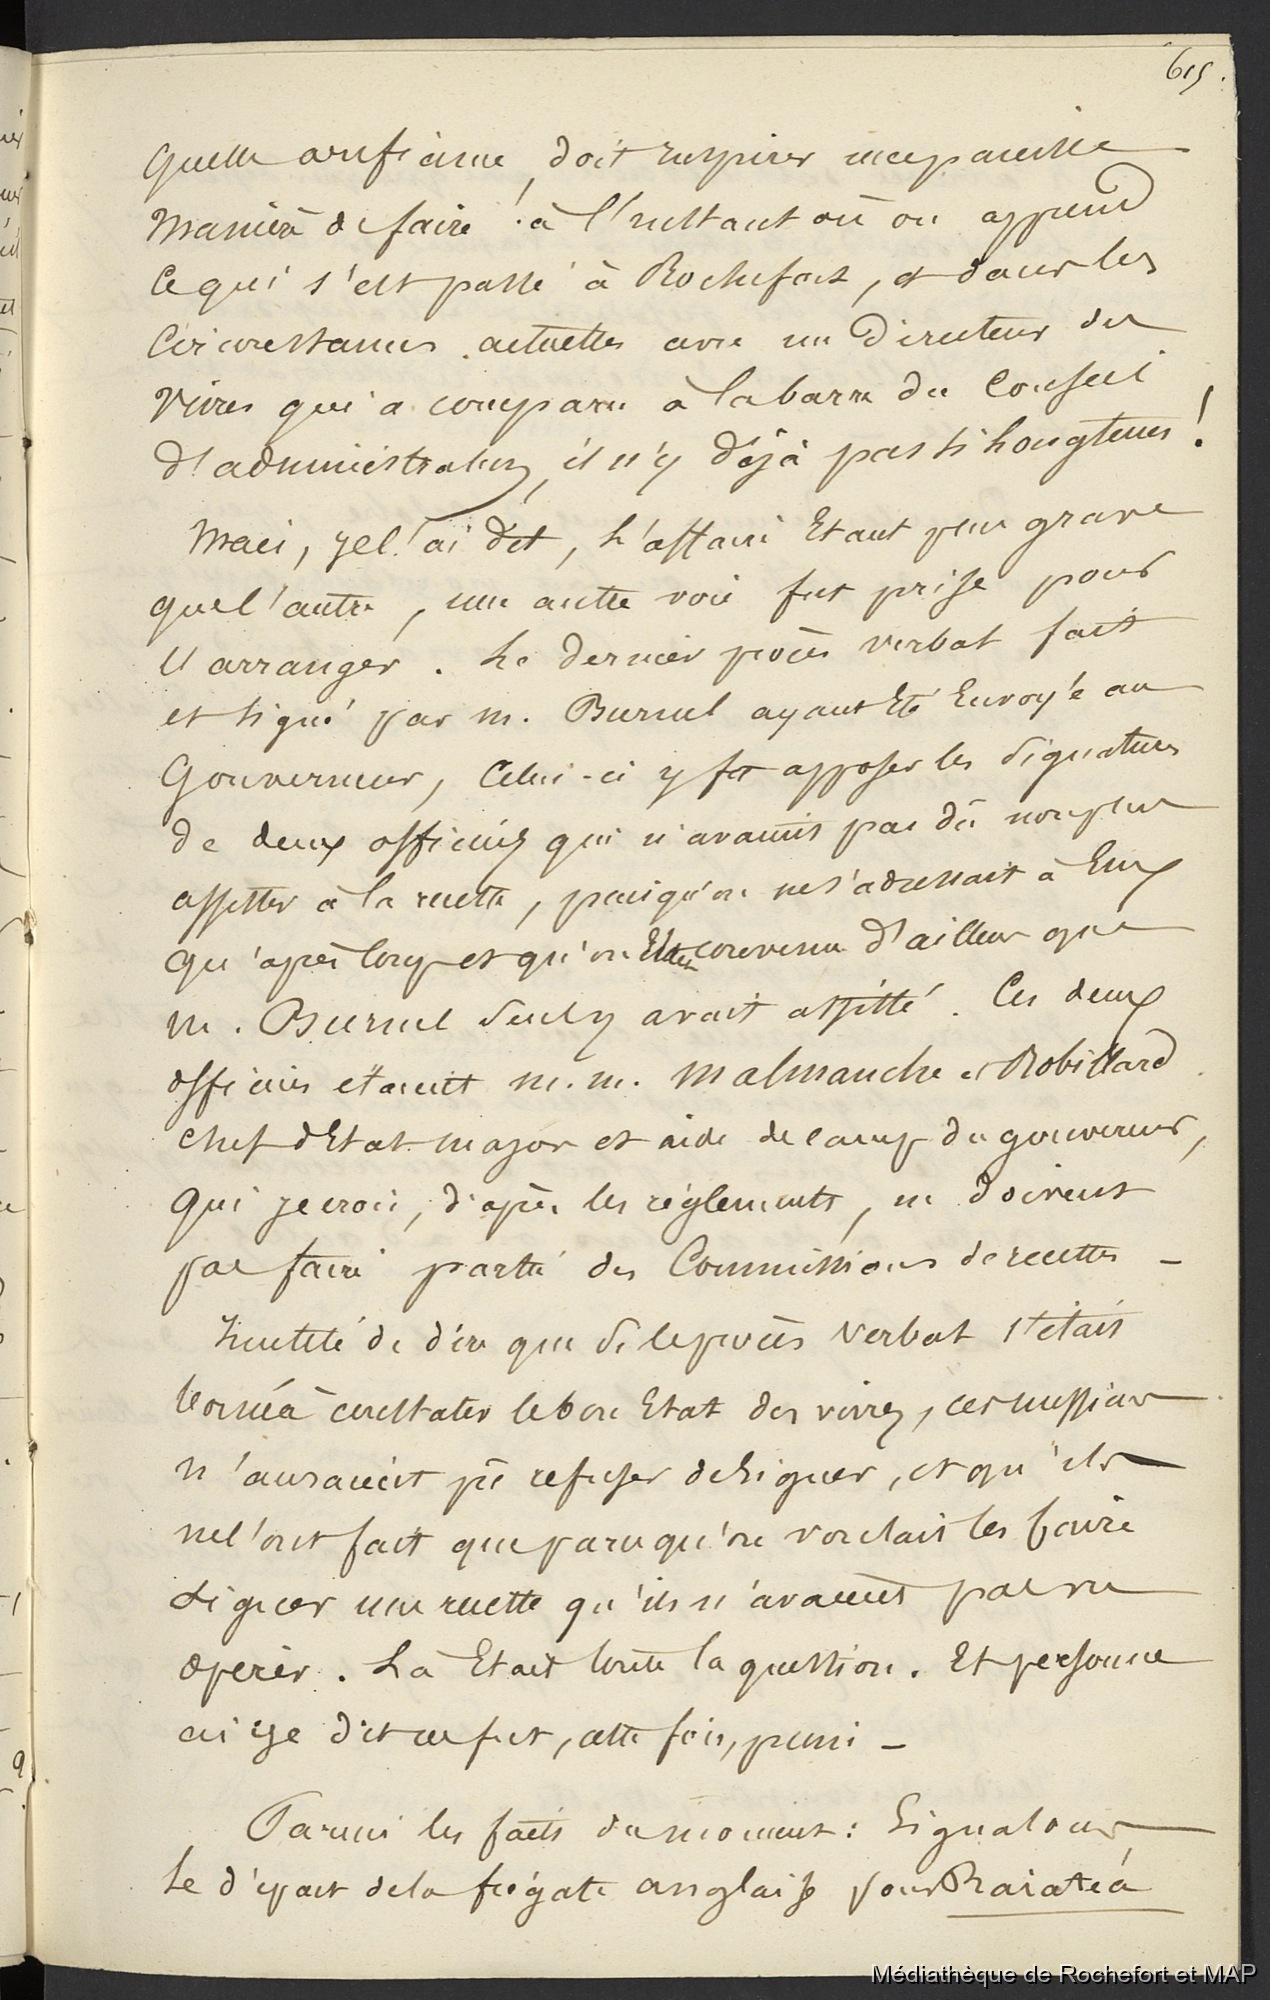 615.
quelle confiance doit inspirer une pareille
manière de faire ! à l'instant où on apprend
ce qui s'est passé à Rochefort, et dans les
circonstances actuelles avec un Directeur des
vivres qui a comparu à la barre du Conseil
d'administration, il n'y déjà pas si longtems !
Mais, je l'ai dit, l'affaire Etant peu grave
que l'autre, une autre voie fut prise pour
l'arranger. Le dernier procès verbal fait
et signé par M. Burnel ayant Eté Envoyé au
Gouverneur, Celui-ci y fit apposer les signatures
de deux officiers qui n'avaient pas dû non plus
assister à la recette, puisqu'on ne s'adressait à Eux
qu'après coup et qu'on Etait convenu d'ailleurs que
M. Burnel seul y avait assisté. Ces deux
officiers etaient M.M. Malmanche et Robillard
chef d'Etat major et aide de camp du gouverneur,
qui je crois, d'après les réglements, ne doivent
pas faire partie des Commissions de recettes -
Inutile de dire que si le procès verbal s'était
borné à constater le bon Etat des vivres, ces messieurs
n'auraient pu refuser de signer, et qu'ils
ne l'ont fait que parcequ'on voulait les faire
signer une recette qu'ils n'avaient pas vu
opérer. Là Etait toute la question. Et personne
ai-je dit ne fut, cette fois, puni -
Parmi les faits du moment : Signalons
Le départ de la frégate anglaise pour Raiatéa
Médiathèque de Rochefort et MAP